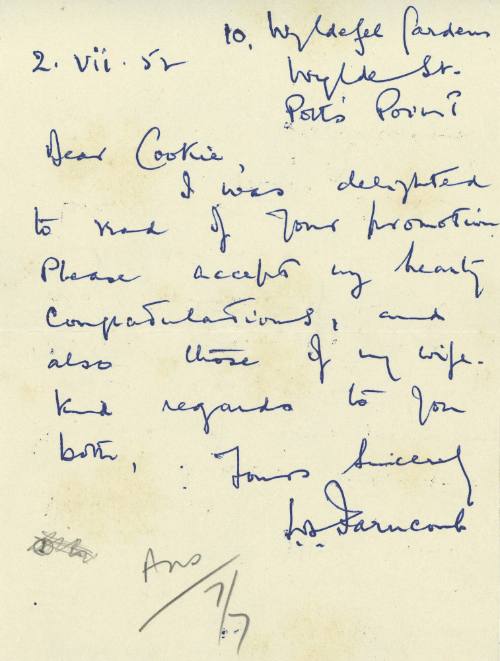 10, Wyldefel Gardens
2. vii. 52
Wylde St.
Potts Point
Dear Cookie,
I was delighted
to read of your promotion
Please accept my hearty
congratulations, and
also those of my wife.
Kind regards to you
both,
Yours Sincerely
Farncomb
Ans
7/7